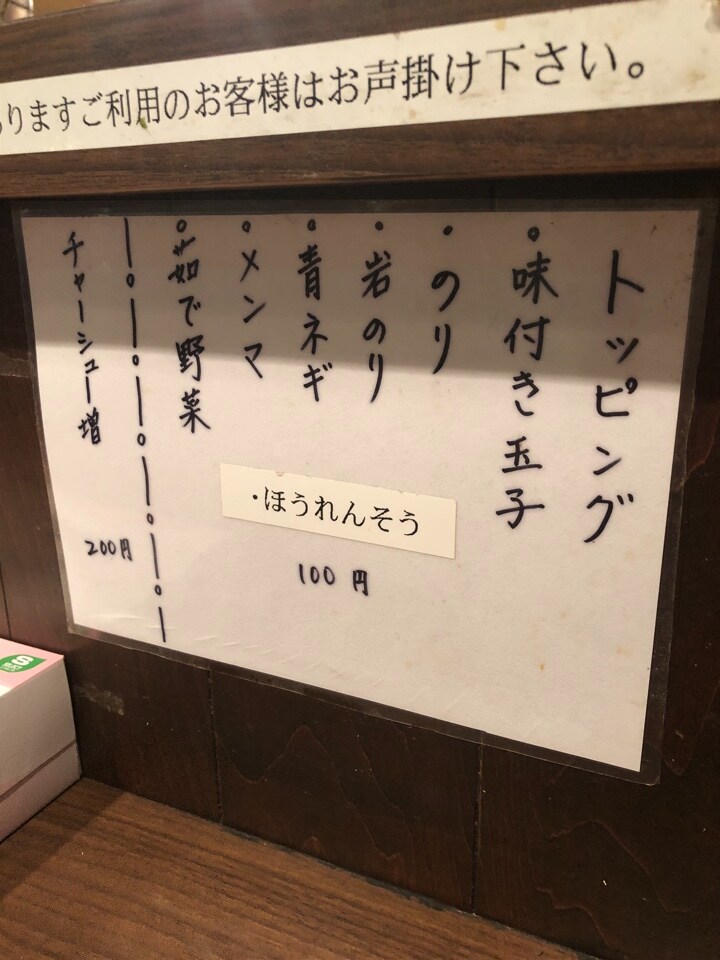 りますご利用のお客様はお声掛け下さい。
トッピング
・味付き玉子
・のり
・岩のり
・青ネギ
・メンマ
・茹で野菜
・ほうれんそう
100円
チャーシュー増
200円